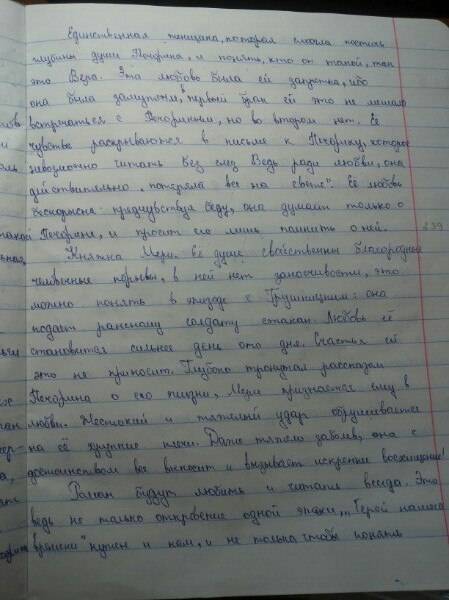 Единственная женщина, которая смогла постичь
глубины души Печорина, и понять, кто он такой,
это Вера. Эта любовь была ей запретна, ибо
она была замужем, в первый брак ей это не мешало
встречаться с Печориным, но во втором нет. Её
чувства раскрываются в письме к Печорину, которое
невозможно читать без слез Ведь ради любви, она
действительно „потеряла все на свете". Её любовь
бескорыстна предчувствуя беду, она думает только о
Печорине, и просит его лишь помнить о ней.
Княжна Мери. Её душе свойственны благородные
человечные порывы, в ней нет заносчивости, это
можно понять в эпизоде с Грушницким: она
подает раненому солдату стакан. Любовь её
становится сильнее день ото дня. Счастья ей
это не приносит. Глубоко тронутая рассказом
Печорина о его жизни, Мери признается ему в
любви. Жестокий и тяжелый удар обрушивается
на её хрупкие плечи. Даже тяжело заболев, она с
достоинством все выносит и вызывает искренне восхищение!
Роман будут любить и читать всегда. Это
ведь не только откровение одной эпохи, „Герой нашего
времени" нужен и нам, и не только чтобы понять